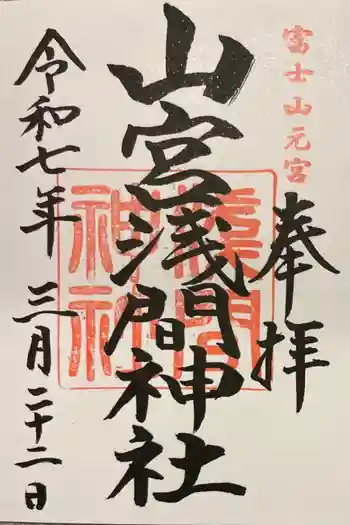 富士山元宮
奉拝
山宮浅間神社
浅間神社
令和七年三月二十二日